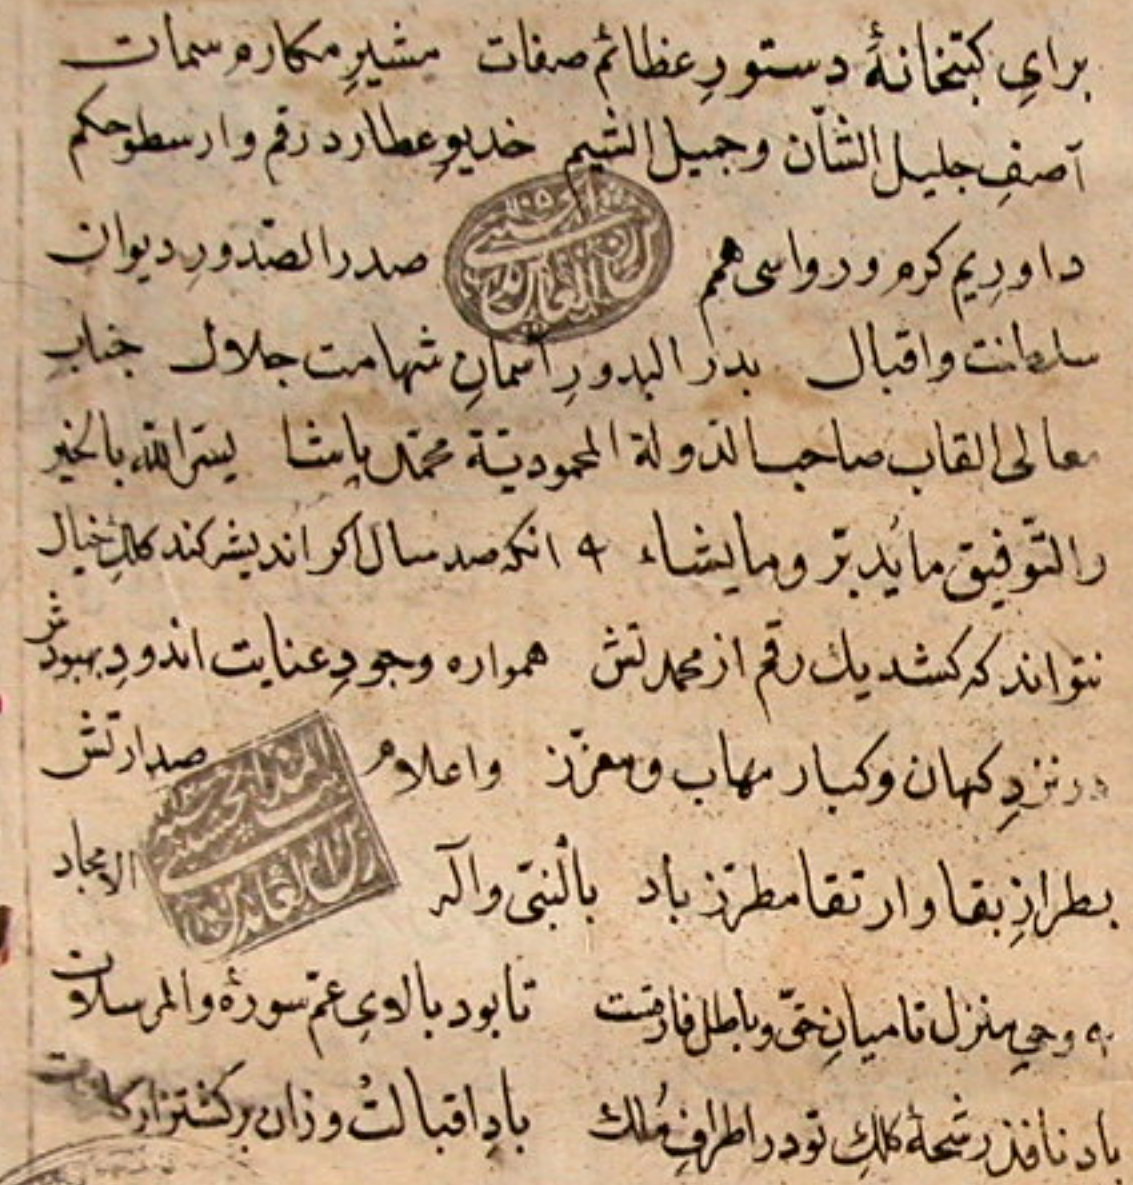 برایِ کتبخانهٔ دستورِ عظائم صفات مشیرِ مکارم سمات
آصفِ جلیل الشّان و جمیل الشیم خدیوِ عطارد رقم و ارسطو حکم
داورِ یم کرم و رواسی همم صدر الصّدورِ دیوان
سلطنت و اقبال بدر البدورِ آسمانِ شهامت جلال جنابِ
معالی القاب صاحب الدّولة المحمودیّة محمّد پاشا یسّر الله بالخیر
والتّوفیق ما یُدبّر و ما یشاء انکه صد سال اکر اندیشه کند کلكِ خیال
نتواند که کشد یك رقم از محمدتش همواره وجودِ عنایت اندودِ بهبودش
در نزدِ کهان و کبار مهاب و معزّز و اعلام صدارتش
بطرازِ بقا و ارتقا مطرّز باد بالنّبیّ و آله الامجاد
وحیِ منزل تا میانِ حقّ و باطل فارقست تا بود بالایِ عمّ سورهٔ والمرسلات
باد نافذ رشحهٔ كلكِ تو در اطرافِ مُلك بادِ اقبالتْ وزان بر کشتزار